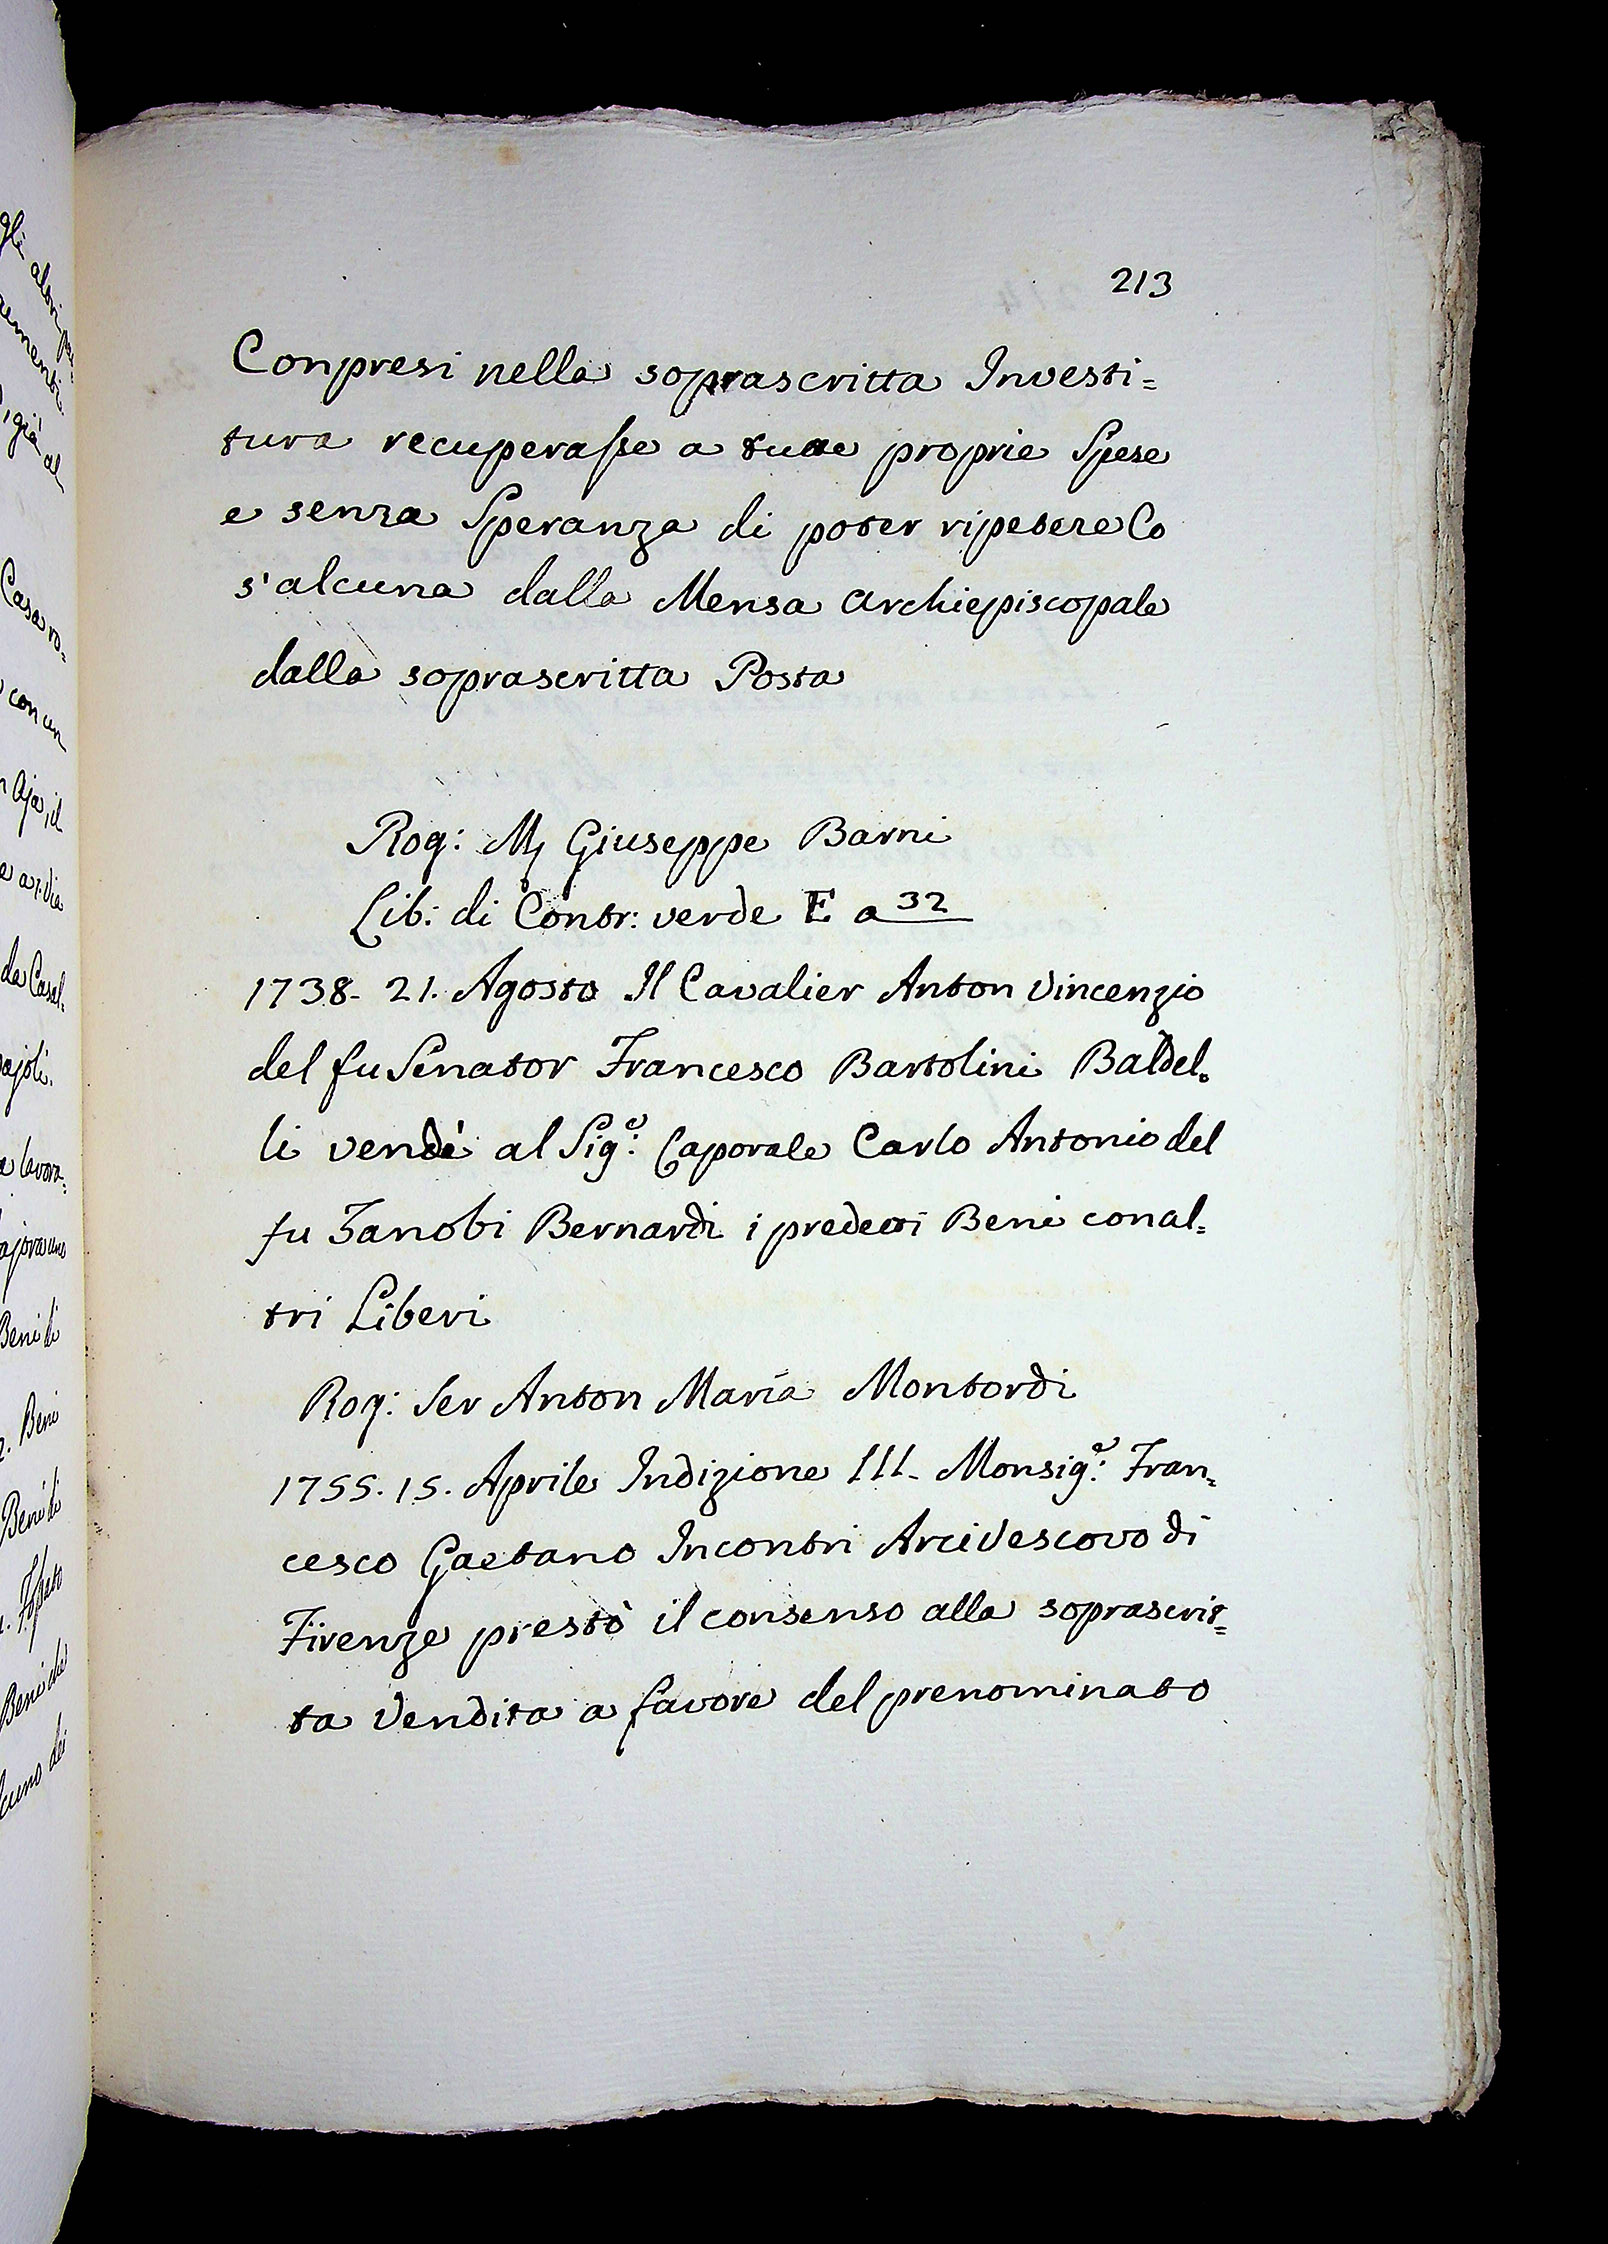 213
Conpresi nella soprascritta Investi=
tura recuperasse a tutte proprie Spese
e senza Speranza di poter ripetere Co
s'alcuna dalla Mensa Archiepiscopale
dalla soprascritta Posta
Rog: M Giuseppe Barni
Lib: di Contr: verde E a 32
1738. 21. Agosto Il Cavalier Anton Vincenzio
del fu Senator Francesco Bartolini Baldel.
li vendè al Sig.e: Caporale Carlo Antonio del
fu Zanobi Bernardi i predetti Beni con al.
tri Liberi
Rog: Ser Anton Maria Montordi
1755. 15. Aprile Indizione III. Monsig.e: Fran.
cesco Gaetano Incontri Arcivescovo di
Firenze prestò il consenso alla soprascrit=
ta Vendita a favore del prenominato
con un
Aja, il
da Casal.
Beni di
Beni
Beni di
Beni che